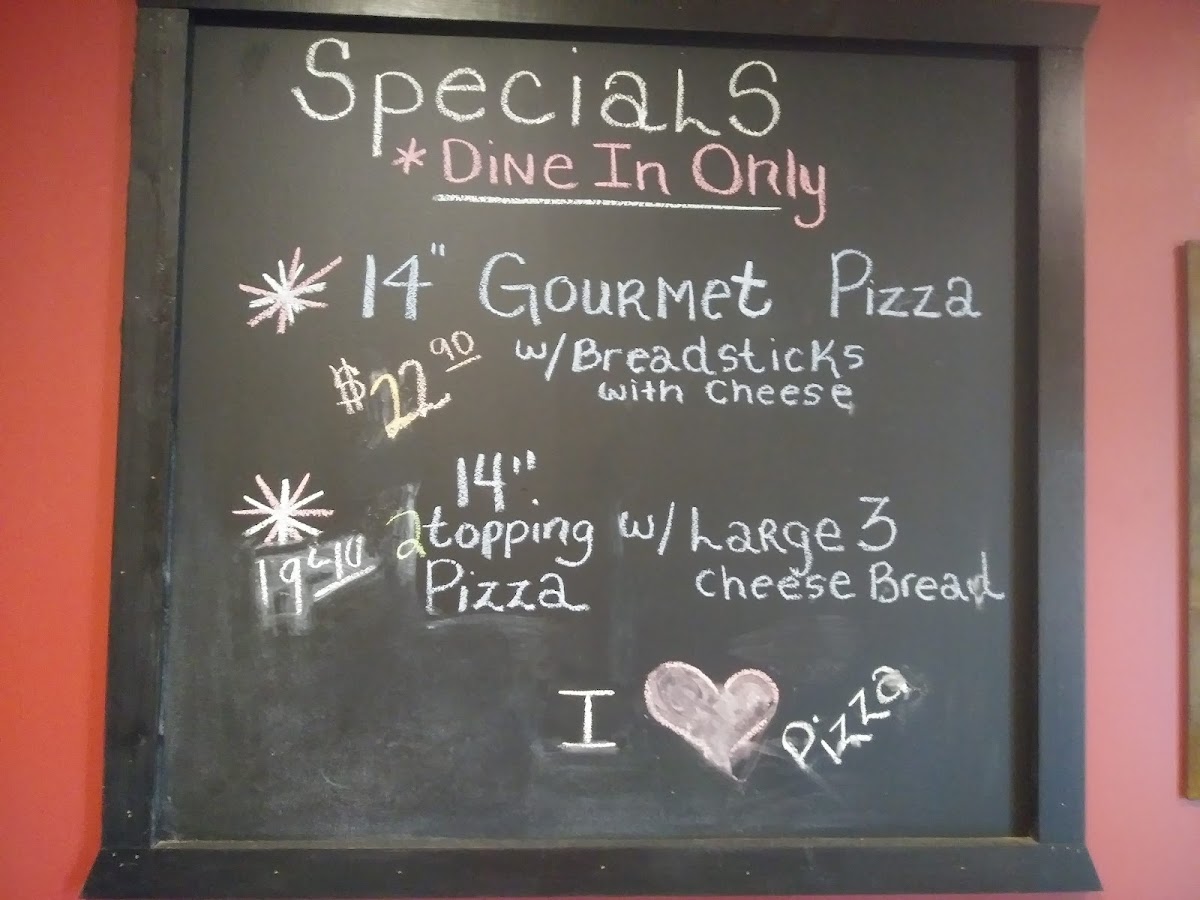 Specials
*Dine In Only
14" Gourmet Pizza
$22.90 w/Breadsticks
with Cheese
14"
2 topping w/ Large 3
Pizza cheese Bread
I
Pizza